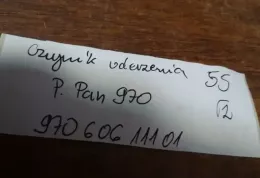 Czynnik uderzenia 55
P. Pan 970 √2
970 606 11 01